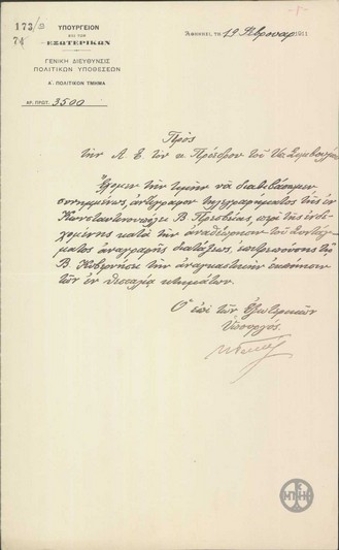 173/3
74
ΥΠΟΥΡΓΕΙΟΝ
ΕΠΙ ΤΩΝ
ΕΞΩΤΕΡΙΚΩΝ
ΓΕΝΙΚΗ ΔΙΕΥΘΥΝΣΙΣ
ΠΟΛΙΤΙΚΩΝ ΥΠΟΘΕΣΕΩΝ
Α'. ΠΟΛΙΤΙΚΟΝ ΤΜΗΜΑ
ΑΡ. ΠΡΩΤ. 3500
Ἀθήνησι, τῇ 19 Φεβρουαρ 1911
Πρὸς
τὴν Α. Ε. τὸν κ. Πρόεδρον τοῦ Ὑπ. Συμβουλίου
Ἔχομεν τὴν τιμὴν νὰ διαβιβάσωμεν
συνημμένως ἀντίγραφον τηλεγραφήματος τῆς ἐν
Κωνσταντινουπόλει Β. Πρεσβείας, περὶ τῆς ἐνδε-
χομένης κατὰ τὴν ἀναθεώρησιν τοῦ Συντάγ-
ματος ἀναγραφῆς διατάξεως, ἐπιτρεπούσης τῇ
Β. Κυβερνήσει τὴν ἀναγκαστικὴν ἐκποίησιν
τῶν ἐν Θεσσαλίᾳ κτημάτων.
Ὁ ἐπὶ τῶν Ἐξωτερικῶν
Ὑπουργὸς